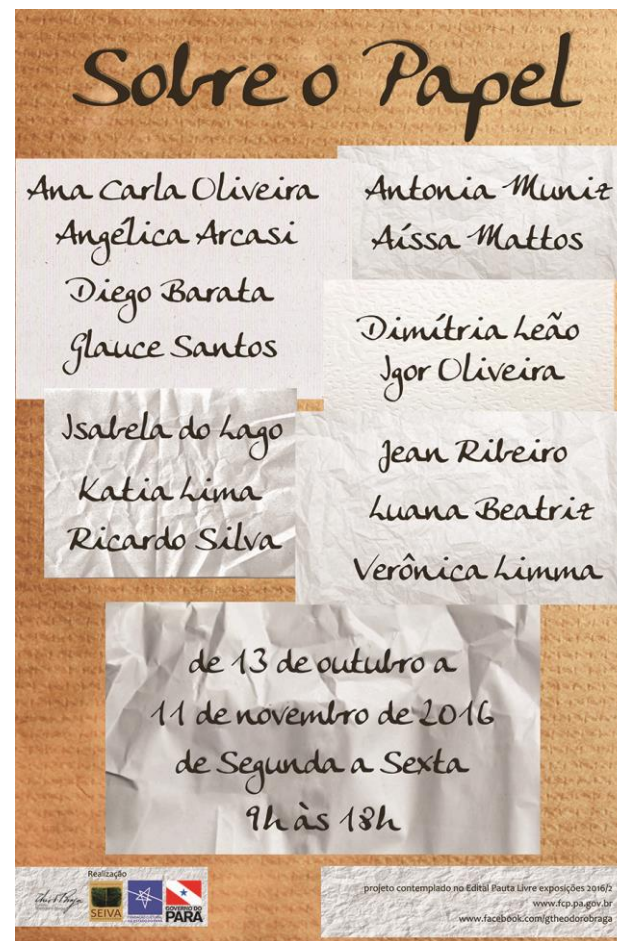 Sobre o Papel
Ana Carla Oliveira
Angélica Arcasi
Diego Barata
Glauce Santos
Antonia Muniz
Aíssa Mattos
Dimítria Leão
Igor Oliveira
Isabela do Lago
Katia Lima
Ricardo Silva
Jean Ribeiro
Luana Beatriz
Verônica Limma
de 13 de outubro a
11 de novembro de 2016
de Segunda a Sexta
9h às 18h
Realização
SEIVA
GOVERNO DO
PARÁ
projeto contemplado no Edital Pauta Livre exposições 2016/2
www.fcp.pa.gov.br
www.facebook.com/gtheodorobraga